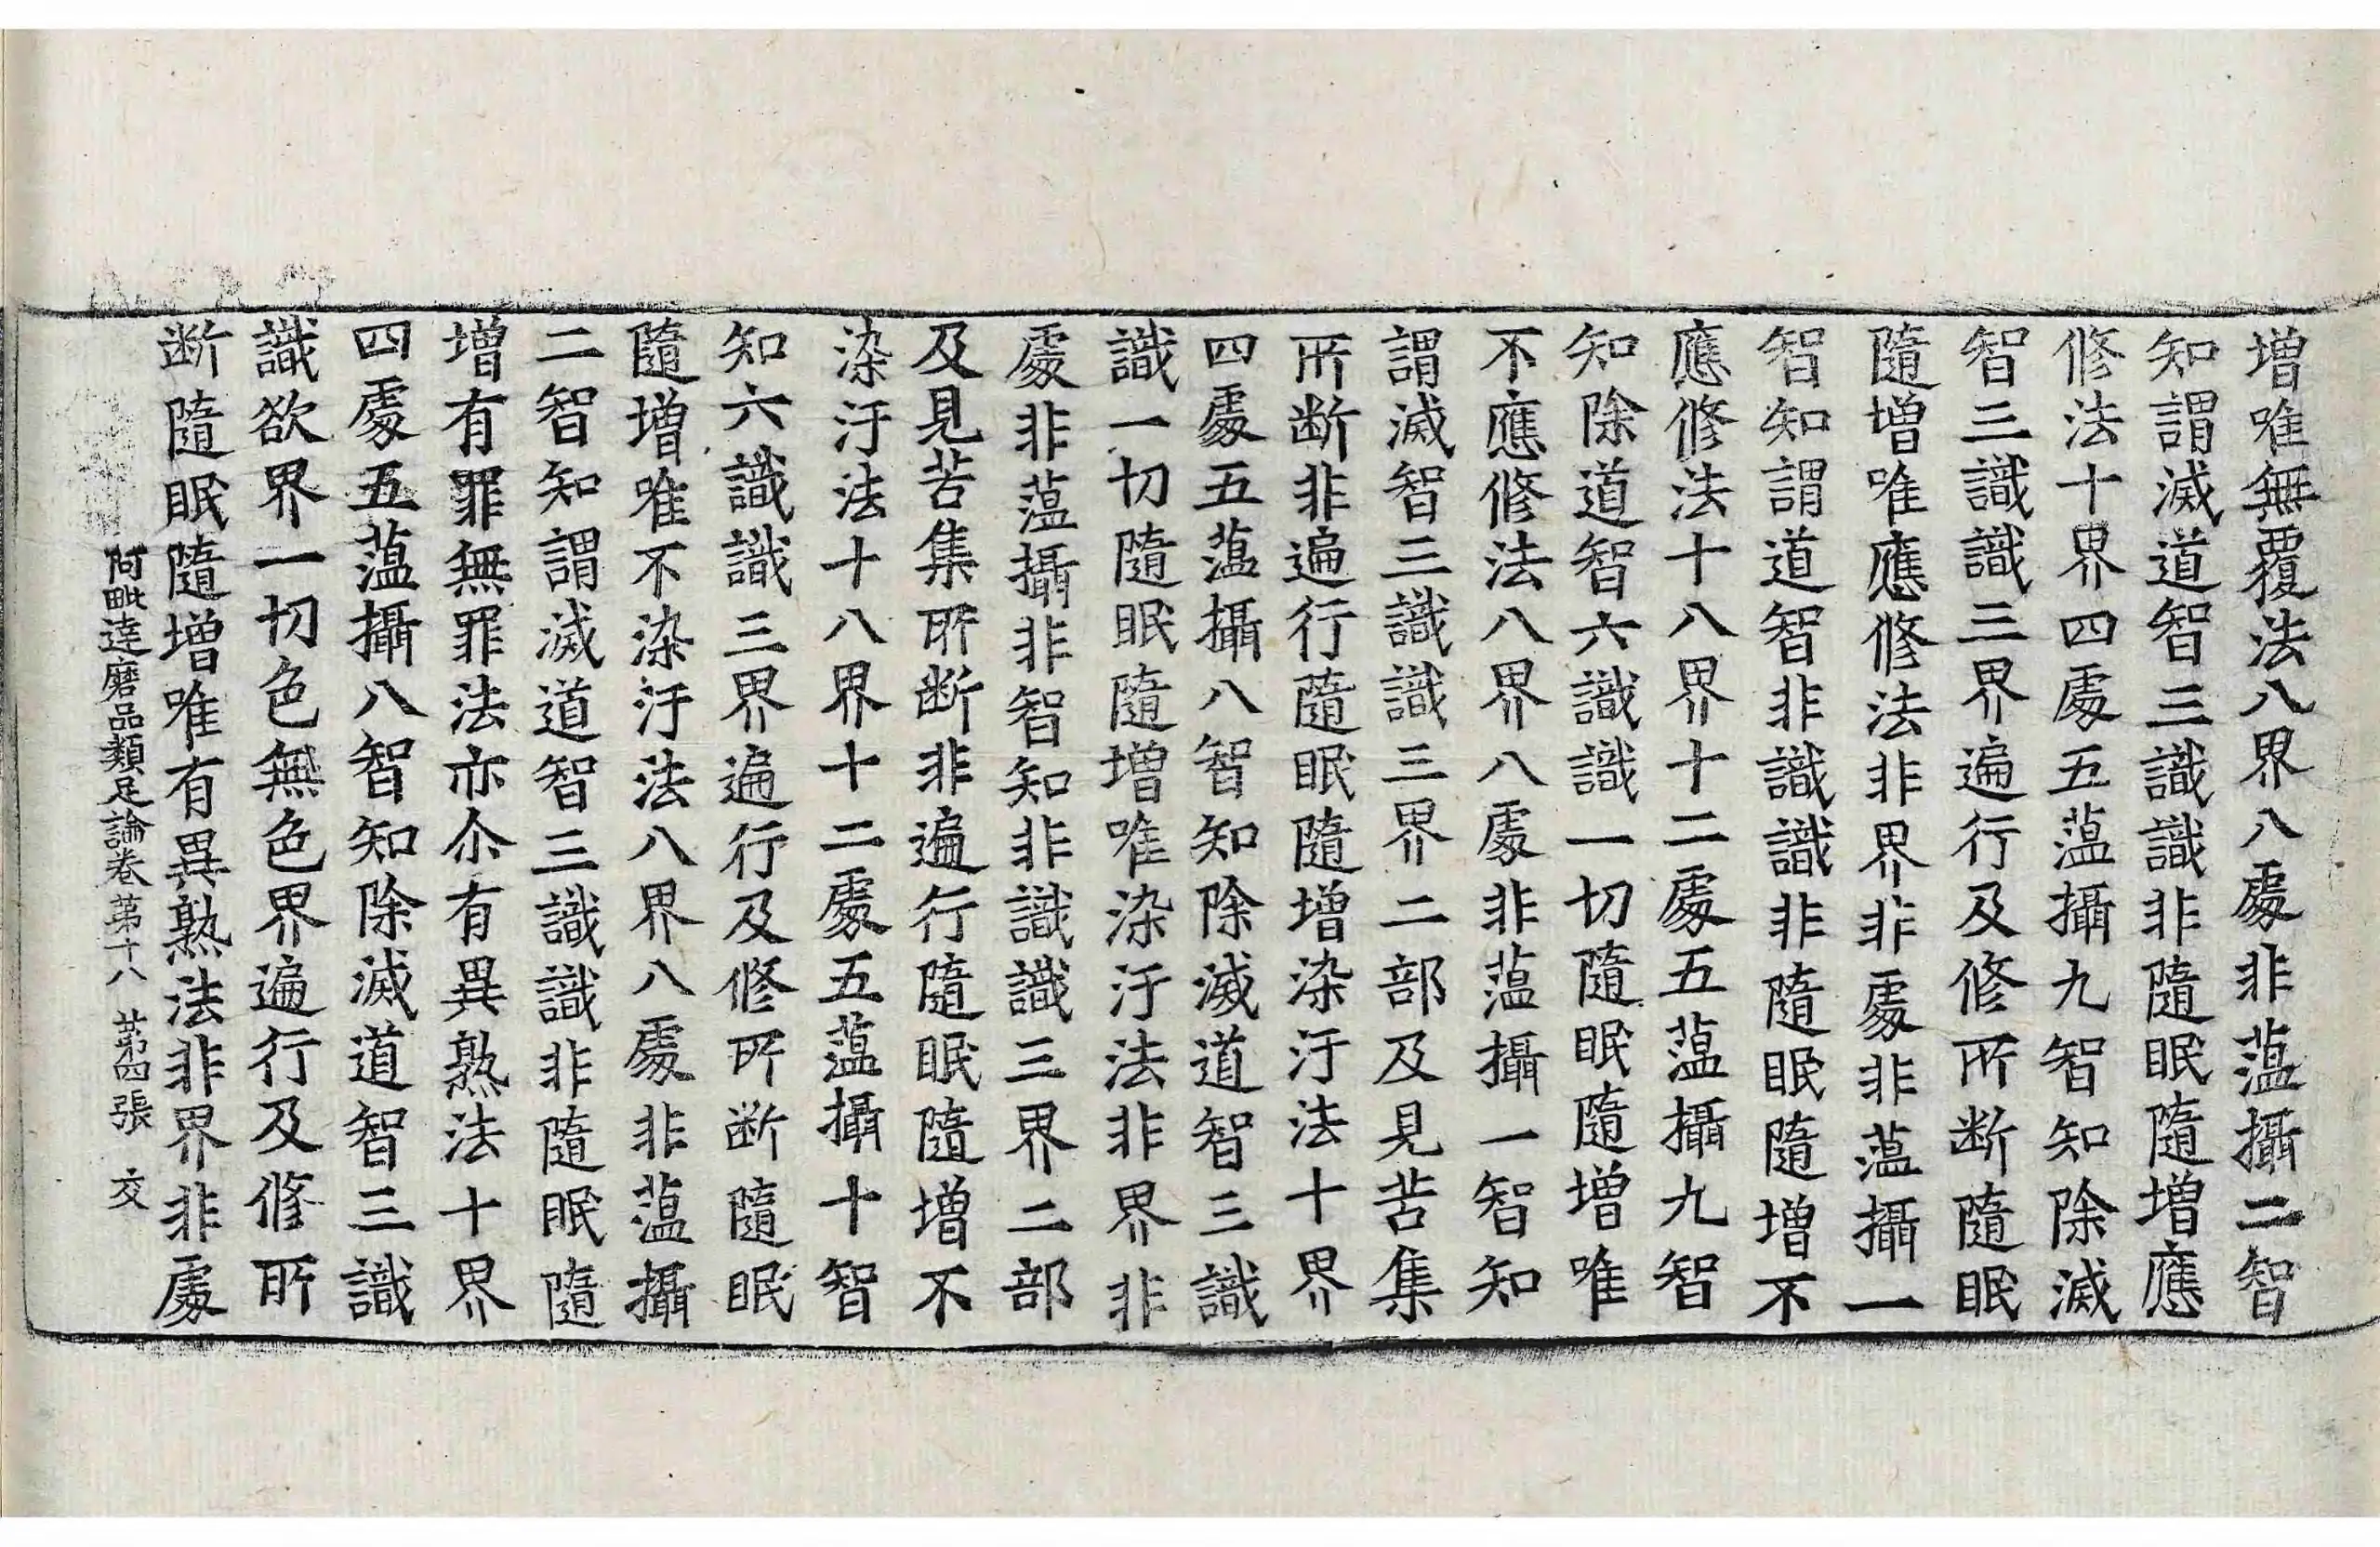 増唯無覆法八界八處非蕰攝二智
知謂滅道智三識識非隨眠隨増應
修法十界四處五蕰攝九智知除滅
智三識識三界遍行及修所断隨眠
隨増唯應修法非界非處非蕰攝一
智知謂道智非識識非隨眠隨増不
應修法十八界十二處五蕰攝九智
知除道智六識識一切隨眠隨増唯
不應修法八界八處非蕰攝一智知
謂滅智三識識三界二部及見苦集
所断非遍行隨眠隨増染汙法十界
四處五蕰攝八智知除滅道智三識
識一切隨眠隨増唯染汙法非界非
處非蕰攝非智知非識識三界二部
及見苦集所断非遍行隨眠隨増不
染汙法十八界十二處五蕰攝十智
知六識識三界遍行及修所断隨眠
隨増唯不染汙法八界八處非蕰攝
二智知謂滅道智三識識非隨眠隨
増有罪無罪法亦尒有異熟法十界
四處五蕰攝八智知除滅道智三識
識欲界一切色無色界遍行及修所
断隨眠隨増唯有異熟法非界非處
阿毗達磨品類足論卷第十八 第四張 交